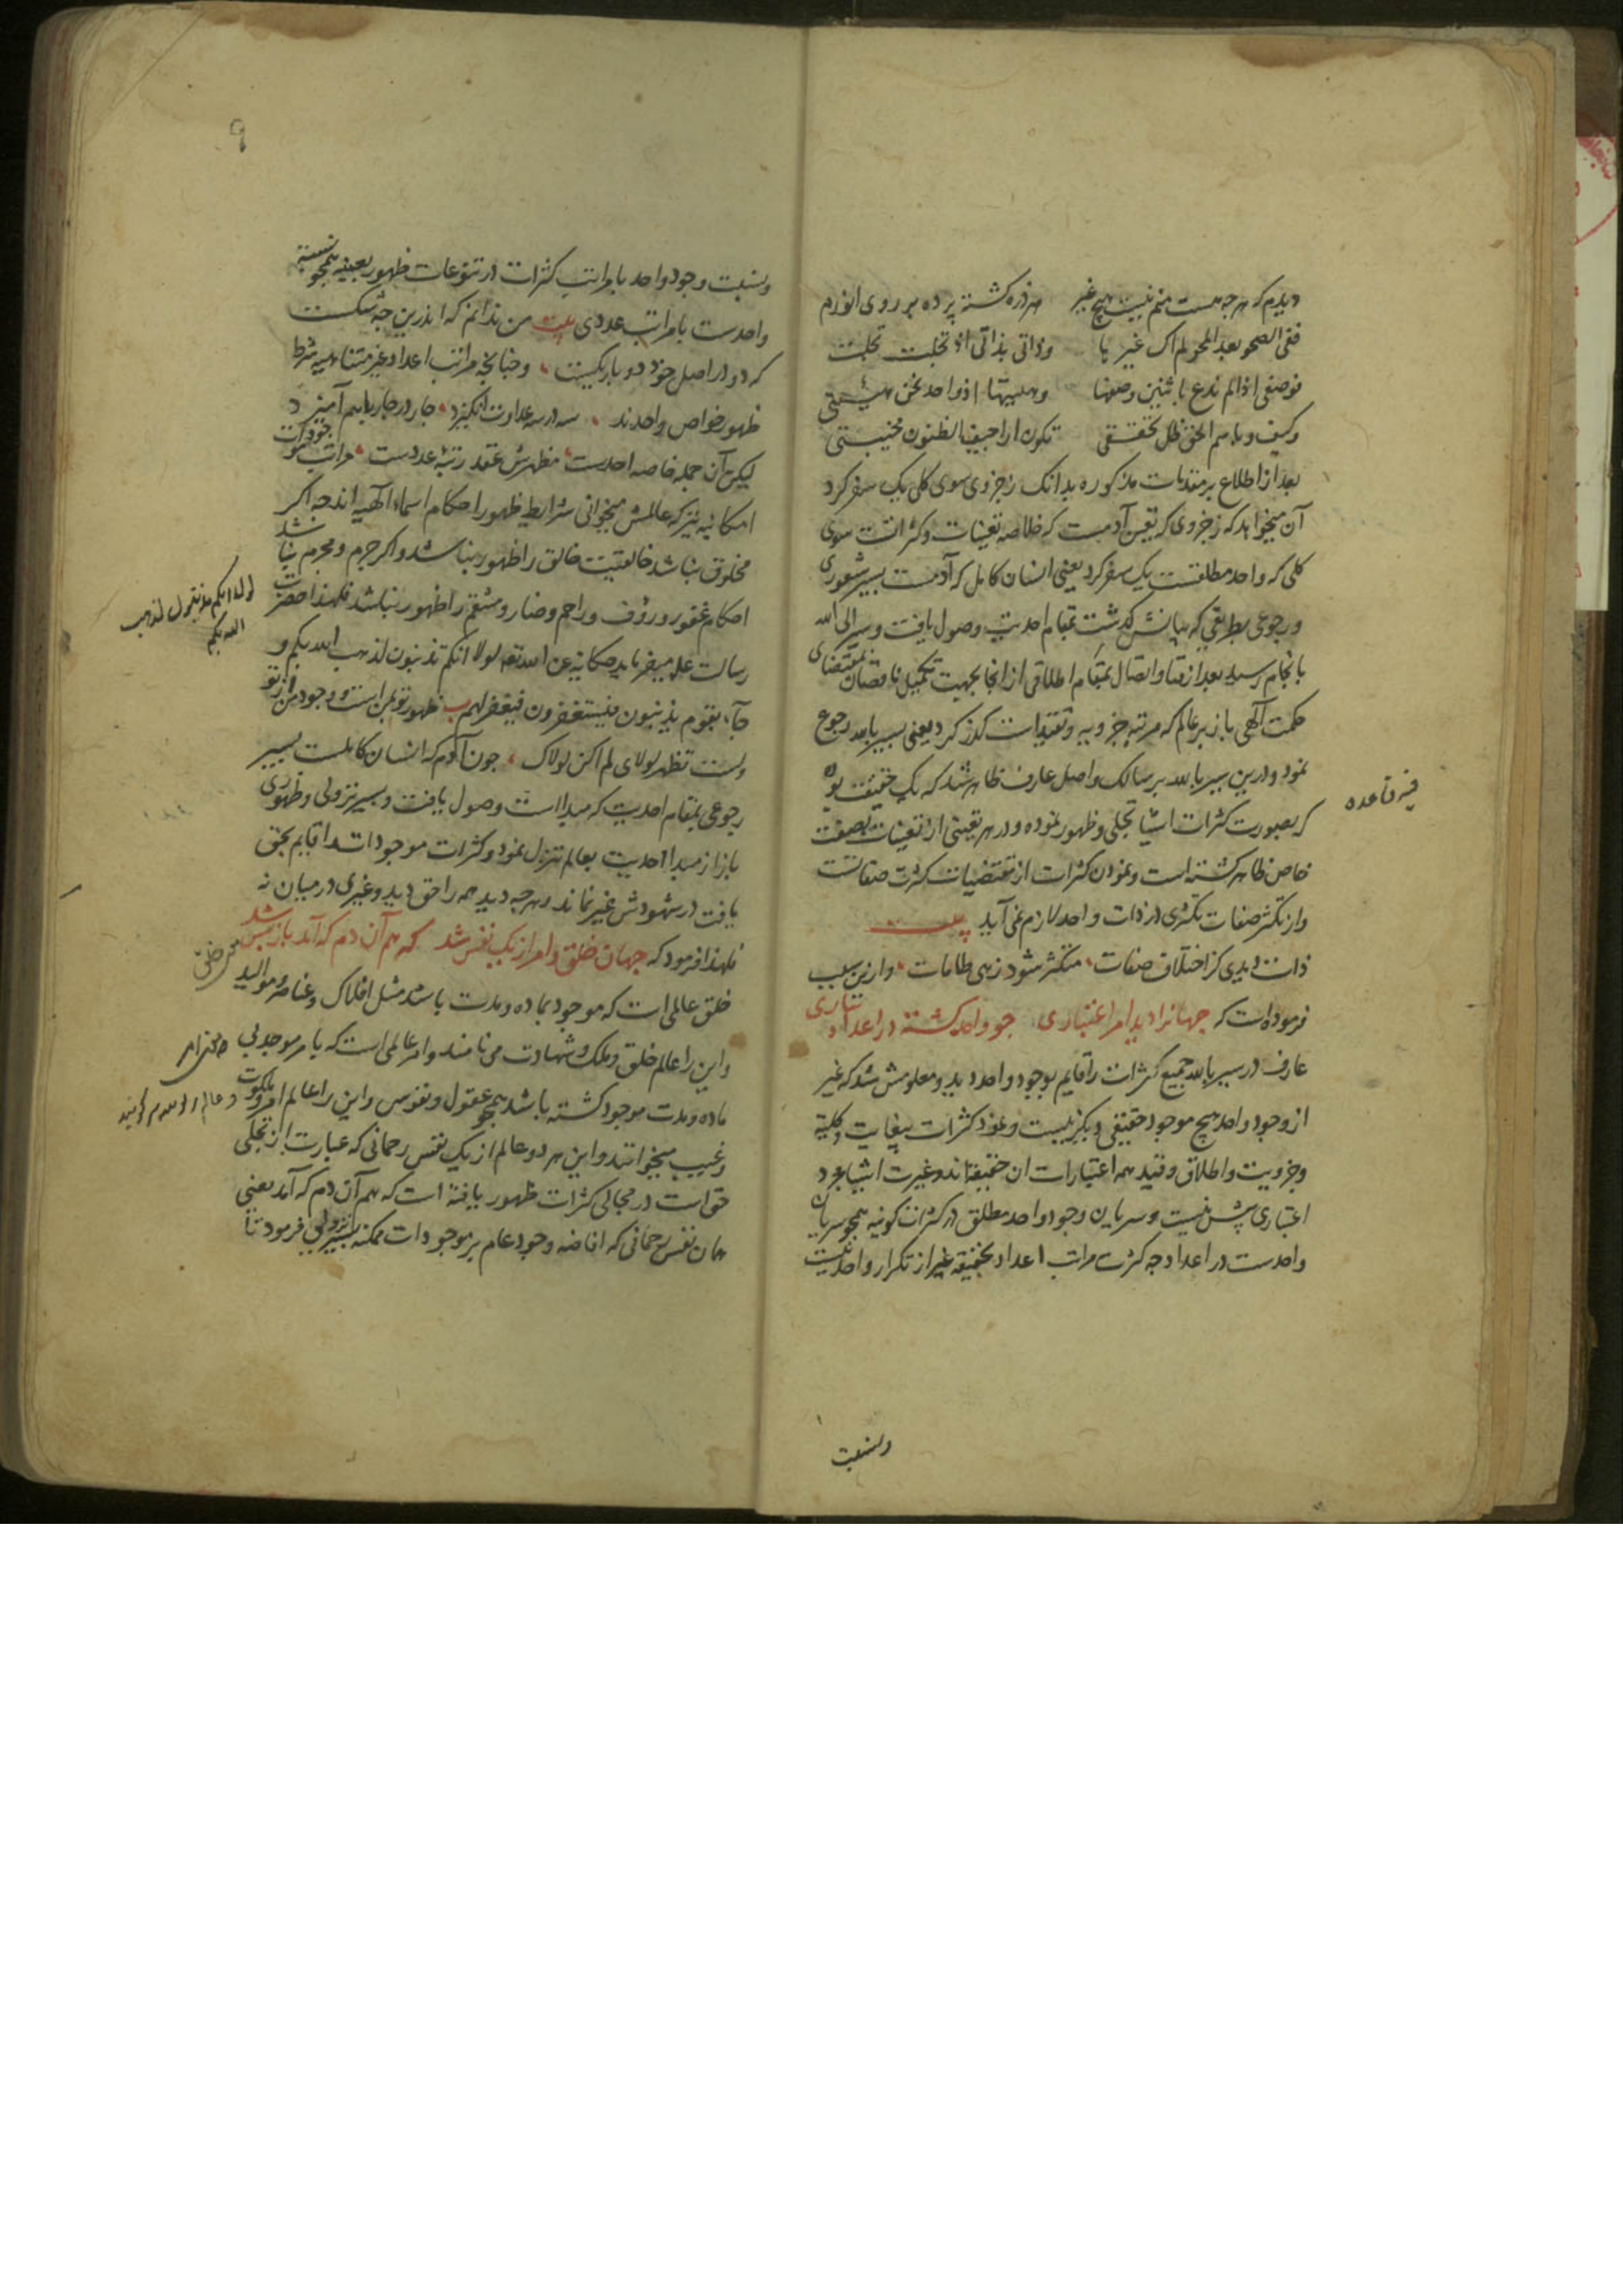 دیدم که هرچه هست منم نیست هیچ غیر هر ذره کشته پرده بر روی انورم
ففی الصحو بعد المحو لم اک غیرها وذاتی بذاتی اذ تجلت تجلت
فوصفی اذا لم ندع باثنین وصفها وهیئتها اذ واحد نحن هیئتی
وکیف وباسم الحق ظل تحققی تکون اراجیف الظنون مخیفتی
بعد از اطلاع بر مقدمات مذکوره بدانک ز جزوی سوی کلی یک سفر کرد
آن میخواهد که ز جزوی که تعین آدمست که خلاصه تعینات وکثراتست سوی
کلی که واحد مطلقست یک سفر کرد یعنی انسان کامل که آدمست بسیر شعوری
ورجوعی بطریقی که بیانش گذشت بمقام احدیت وصول یافت وسیر الی الله
بانجام رسید بعد از فنا واتصال بمقام اطلاقی از انجا بجهت تکمیل ناقصان بمقتضای
حکمت آلهی باز بر عالم که مرتبه جزویه وتقیداست گذر کرد یعنی بسیر بالله رجوع
نمود ودرین سیر بالله بر سالک واصل عارف ظاهر شد که یک حقیقت بود
که بصورت کثرات اشیا تجلی وظهور نموده ودر هر تعینی از تعینات بصفت
خاص ظاهر کشته است ونمودن کثرات از مقتضیات کثرت صفاتست
واز تکثر صفات تکثری در ذات واحد لازم نمی آید بیت
ذات دیدی کز اختلاف صفات متکثر شود زهی طامات وازین سبب
فرموده است که جهانرا دید امر اعتباری جو واحد کشته در اعداد ساری
عارف در سیر بالله جمیع کثرات را قایم بوجود واحد دید ومعلومش شد که غیر
از وجود واحد هیچ موجود حقیقی دیگر نیست ونمود کثرات بیغایت وکلیة
وجزویت واطلاق وقید همه اعتبارات ان حقیقت اند وغیریت اشیا مجرد
اعتباری بیش نیست وسریان وجود واحد مطلق در کثرات کونیه همچو سریان
واحدست در اعداد جه کثرت مراتب اعداد بحقیقه غیر از تکرار واحد نیست
فیه قاعده
ونسبت
٩
ونسبت وجود واحد با مراتب کثرات در تنوعات ظهور بعینه همچو نسبة
واحدست با مراتب عددی بیت من ندانم که اندرین جه شکست
که دو در اصل خود دو بار یکیست وچنانچه مراتب اعداد غیر متناهیه شرط
ظهور خواص واحدند سه در سه عداوت انگیزد جار در جار باهم آمیزد
لیکن آن جمله خاصه احدست مظهرش عقد رتبه عددست مراتب موجودات
امکانیه نیز که عالمش میخوانی شرایط ظهور احکام اسماء الهیه اند جه اکر
مخلوق نباشد خالقیت خالق را ظهور نباشد واکر جرم ومجرم نباشد
احکام غفور ورؤف وراحم وضار ومنتقم را ظهور نباشد فلهذا حضرت
رسالت علم میفرماید حکایة عن الله تعم لولا انکم تذنبون لذهب الله بکم و
جاء بقوم یذنبون فیستغفرون فیغفر لهم ب ظهور تو بمن است ووجود من از تو
ولست تظهر لولای لم اکن لولاک جون آدم که انسان کاملست بسیر
رجوعی بمقام احدیت که مبدا است وصول یافت وبسیر نزولی وظهوری
باز از مبدا احدیت بعالم تنزل نمود وکثرات موجودات را قایم بحق
یافت در شهودش غیر نماند وهرجه دید همه را حق دید وغیری در میان نه
فلهذا فرمود که جهان خلق وامر از یک نفس شد که هم آن دم که آمد باز پس شد
خلق عالمی است که موجود بماده ومدت باشد مثل افلاک وعناصر وموالید
واین را عالم خلق وملک وشهادت می نامند وامر عالمی است که بامر موجد بی
ماده ومدت موجود کشته باشد همچو عقول ونفوس واین را عالم امر وملکوت
وغیب میخوانند واین هر دو عالم از یک نفس رحمانی که عبارت از تجلی
حق است در مجالی کثرات ظهور یافته است که هم آن دم که آمد یعنی
همان نفس رحمانی که افاضه وجود عام بر موجودات ممکنه بسیر نزولی فرمود تا
لولا انکم لذهب
الله بکم
معنی خلق
معنی امر